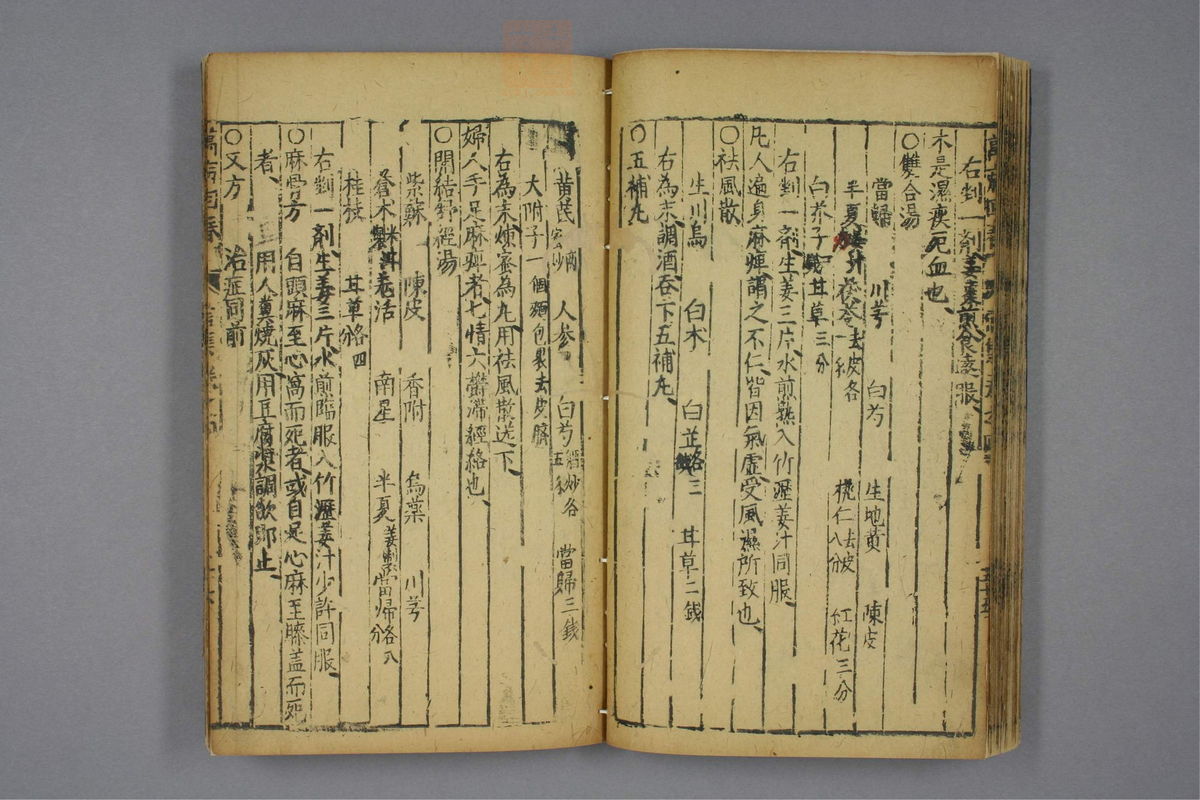 右剉一剤姜棗煎食遠服
木是濕痰死血也
○雙合湯
當歸 川芎 白芍 生地黄 陳皮
半夏 茯苓去皮各一 桃仁八分去皮 紅花三分
白芥子一 甘草三分
右剉一剤生姜三片水煎熱入竹瀝姜汁同服
凡人遍身麻痺謂之不仁皆因氣虛受風濕所致也
○祛風散
生川烏 白朮 白芷各三錢 甘草二錢
右為末調酒吞下五補丸
○五補丸
黄芪蜜炒 人参 白芍酒炒各五 當歸三錢
大附子一個麵包裹去皮臍
右為末煉蜜為丸用祛風散送下
婦人手足麻痺者七情六鬱滯經絡也
○開結舒經湯
紫蘇 陳皮 香附 烏薬 川芎
蒼朮米泔製 羗活 南星 半夏姜製 當帰各八分
桂枝 甘草各四分
右剉一剤生姜三片水煎臨服入竹瀝姜汁少許同服
○麻骨方 自頭麻至心窩而死者或自足心麻至膝盖而死
者 用人糞焼灰用豆腐漿水調飲即止
○又方 治症同前